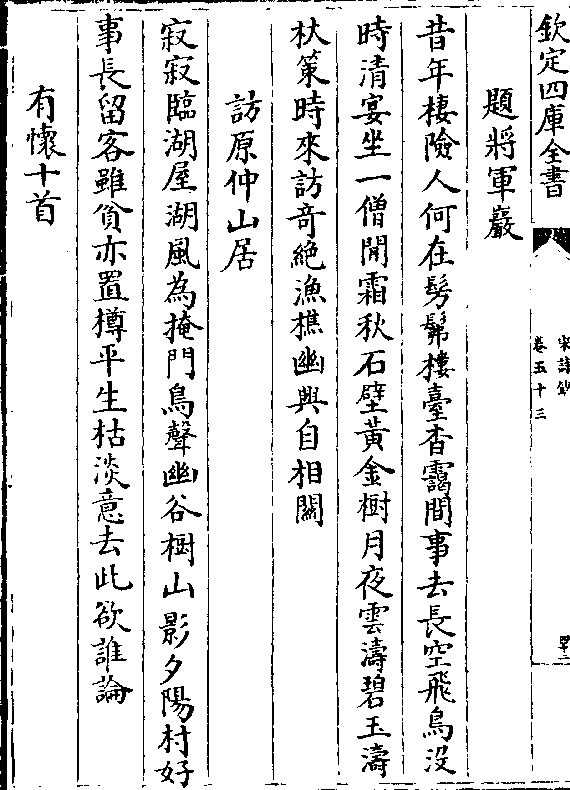 欽定四庫全書
宋詩鈔
卷五十三
題將軍巖
昔年棲險人何在髣髴樓臺杳靄間事去長空飛鳥没
時清宴坐一僧閒霜秋石壁黃金樹月夜雲濤碧玉濤
杖策時來訪奇絕漁樵幽興自相關
訪原仲山居
寂寂臨湖屋湖風為掩門鳥聲幽谷樹山影夕陽村好
事長留客雖貧亦置樽平生枯淡意去此欲誰論
有懷十首